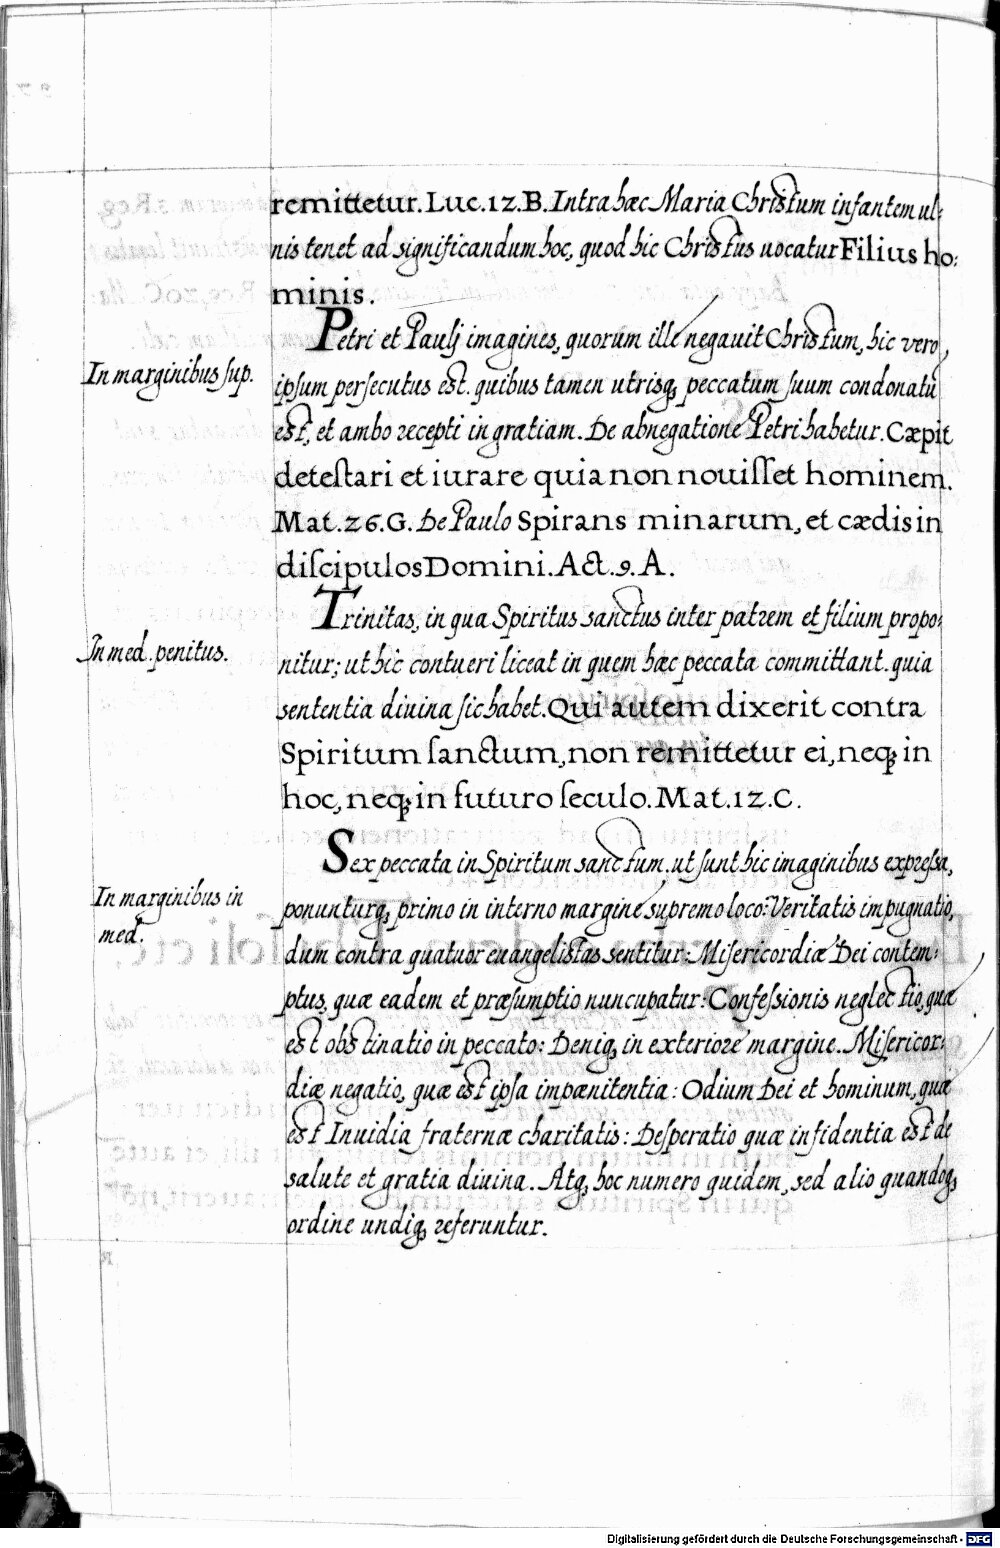 remittetur. Luc. 12. B. Intra hæc Maria Christum infantem ul:
nis tenet ad significandum hoc, quod hic Christus uocatur Filius ho:
minis.
In marginibus sup.
Petri et Paulj imagines, quorum ille negauit Christum, hic vero
ipsum persecutus est. quibus tamen utrisq; peccatum suum condonatū
est, et ambo recepti in gratiam. De abnegatione Petri habetur. Cæpit
detestari et iurare quia non nouisset hominem.
Mat. 26. G. De Paulo Spirans minarum, et cædis in
discipulos Domini. Act. 9. A.
In med. penitus.
Trinitas, in qua Spiritus sanctus inter patrem et filium propo:
nitur; ut hic contueri liceat in quem hæc peccata committant. quia
sententia diuina sic habet. Qui autem dixerit contra
Spiritum sanctum, non remittetur ei, neq; in
hoc, neq; in futuro seculo. Mat. 12. C.
In marginibus in
med.
Sex peccata in Spiritum sanctum. ut sunt hic imaginibus expressa,
ponunturq; primo in interno margine supremo loco: Veritatis impugnatio,
dum contra quatuor euangelistas sentitur: Misericordiæ Dei contem:
ptus, quæ eadem et præsumptio nuncupatur: Confessionis neglectio, quæ
est obstinatio in peccato: Deniq; in exteriore margine. Misericor:
diæ negatio, quæ est ipsa impænitentia: Odium Dei et hominum, quæ
est Inuidia fraternæ charitatis: Desperatio quæ infidentia est de
salute et gratia diuina. Atq; hoc numero quidem, sed alio quandoq;
ordine undiq; referuntur.
Digitalisierung gefördert durch die Deutsche Forschungsgemeinschaft - DFG